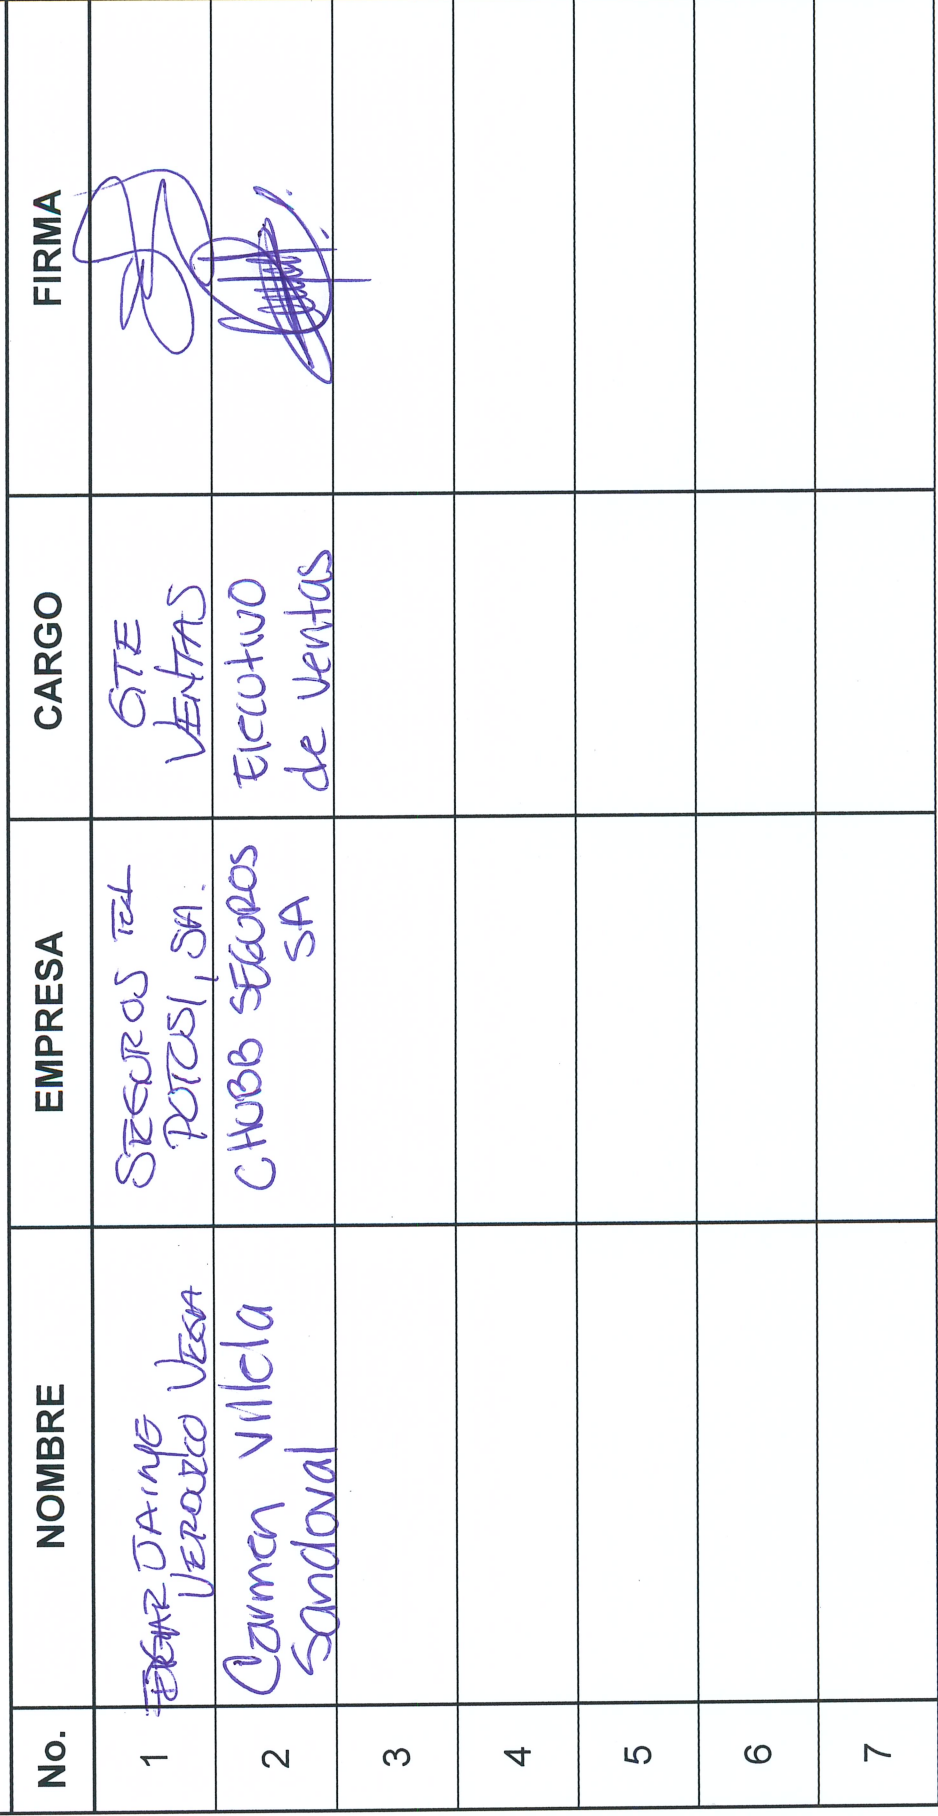 No. NOMBRE EMPRESA CARGO FIRMA
1
EDGAR JAIME
VERDUZCO VEGA
SEGUROS EL
POTOSI, SA.
GTE
VENTAS
2
Carmen Villela
Sandoval
CHUBB SEGUROS
SA
Ejecutivo
de Ventas
3
4
5
6
7